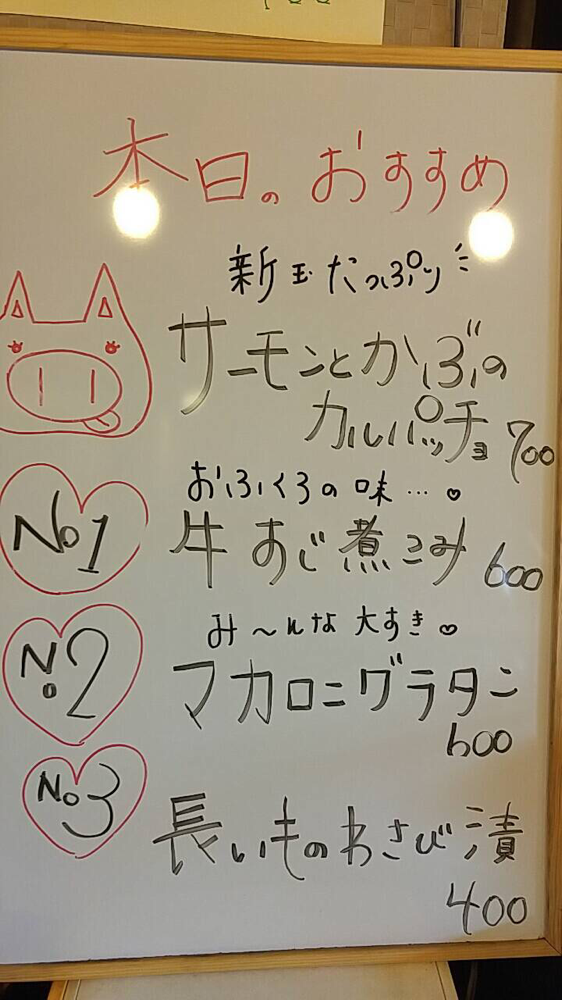 本日のおすすめ
新玉たっぷり
サーモンとかぶの
カルパッチョ 700
おふくろの味…♡
No1 牛すじ煮こみ 600
み〜んな大すき♡
No2 マカロニグラタン
600
No3 長いものわさび漬
400